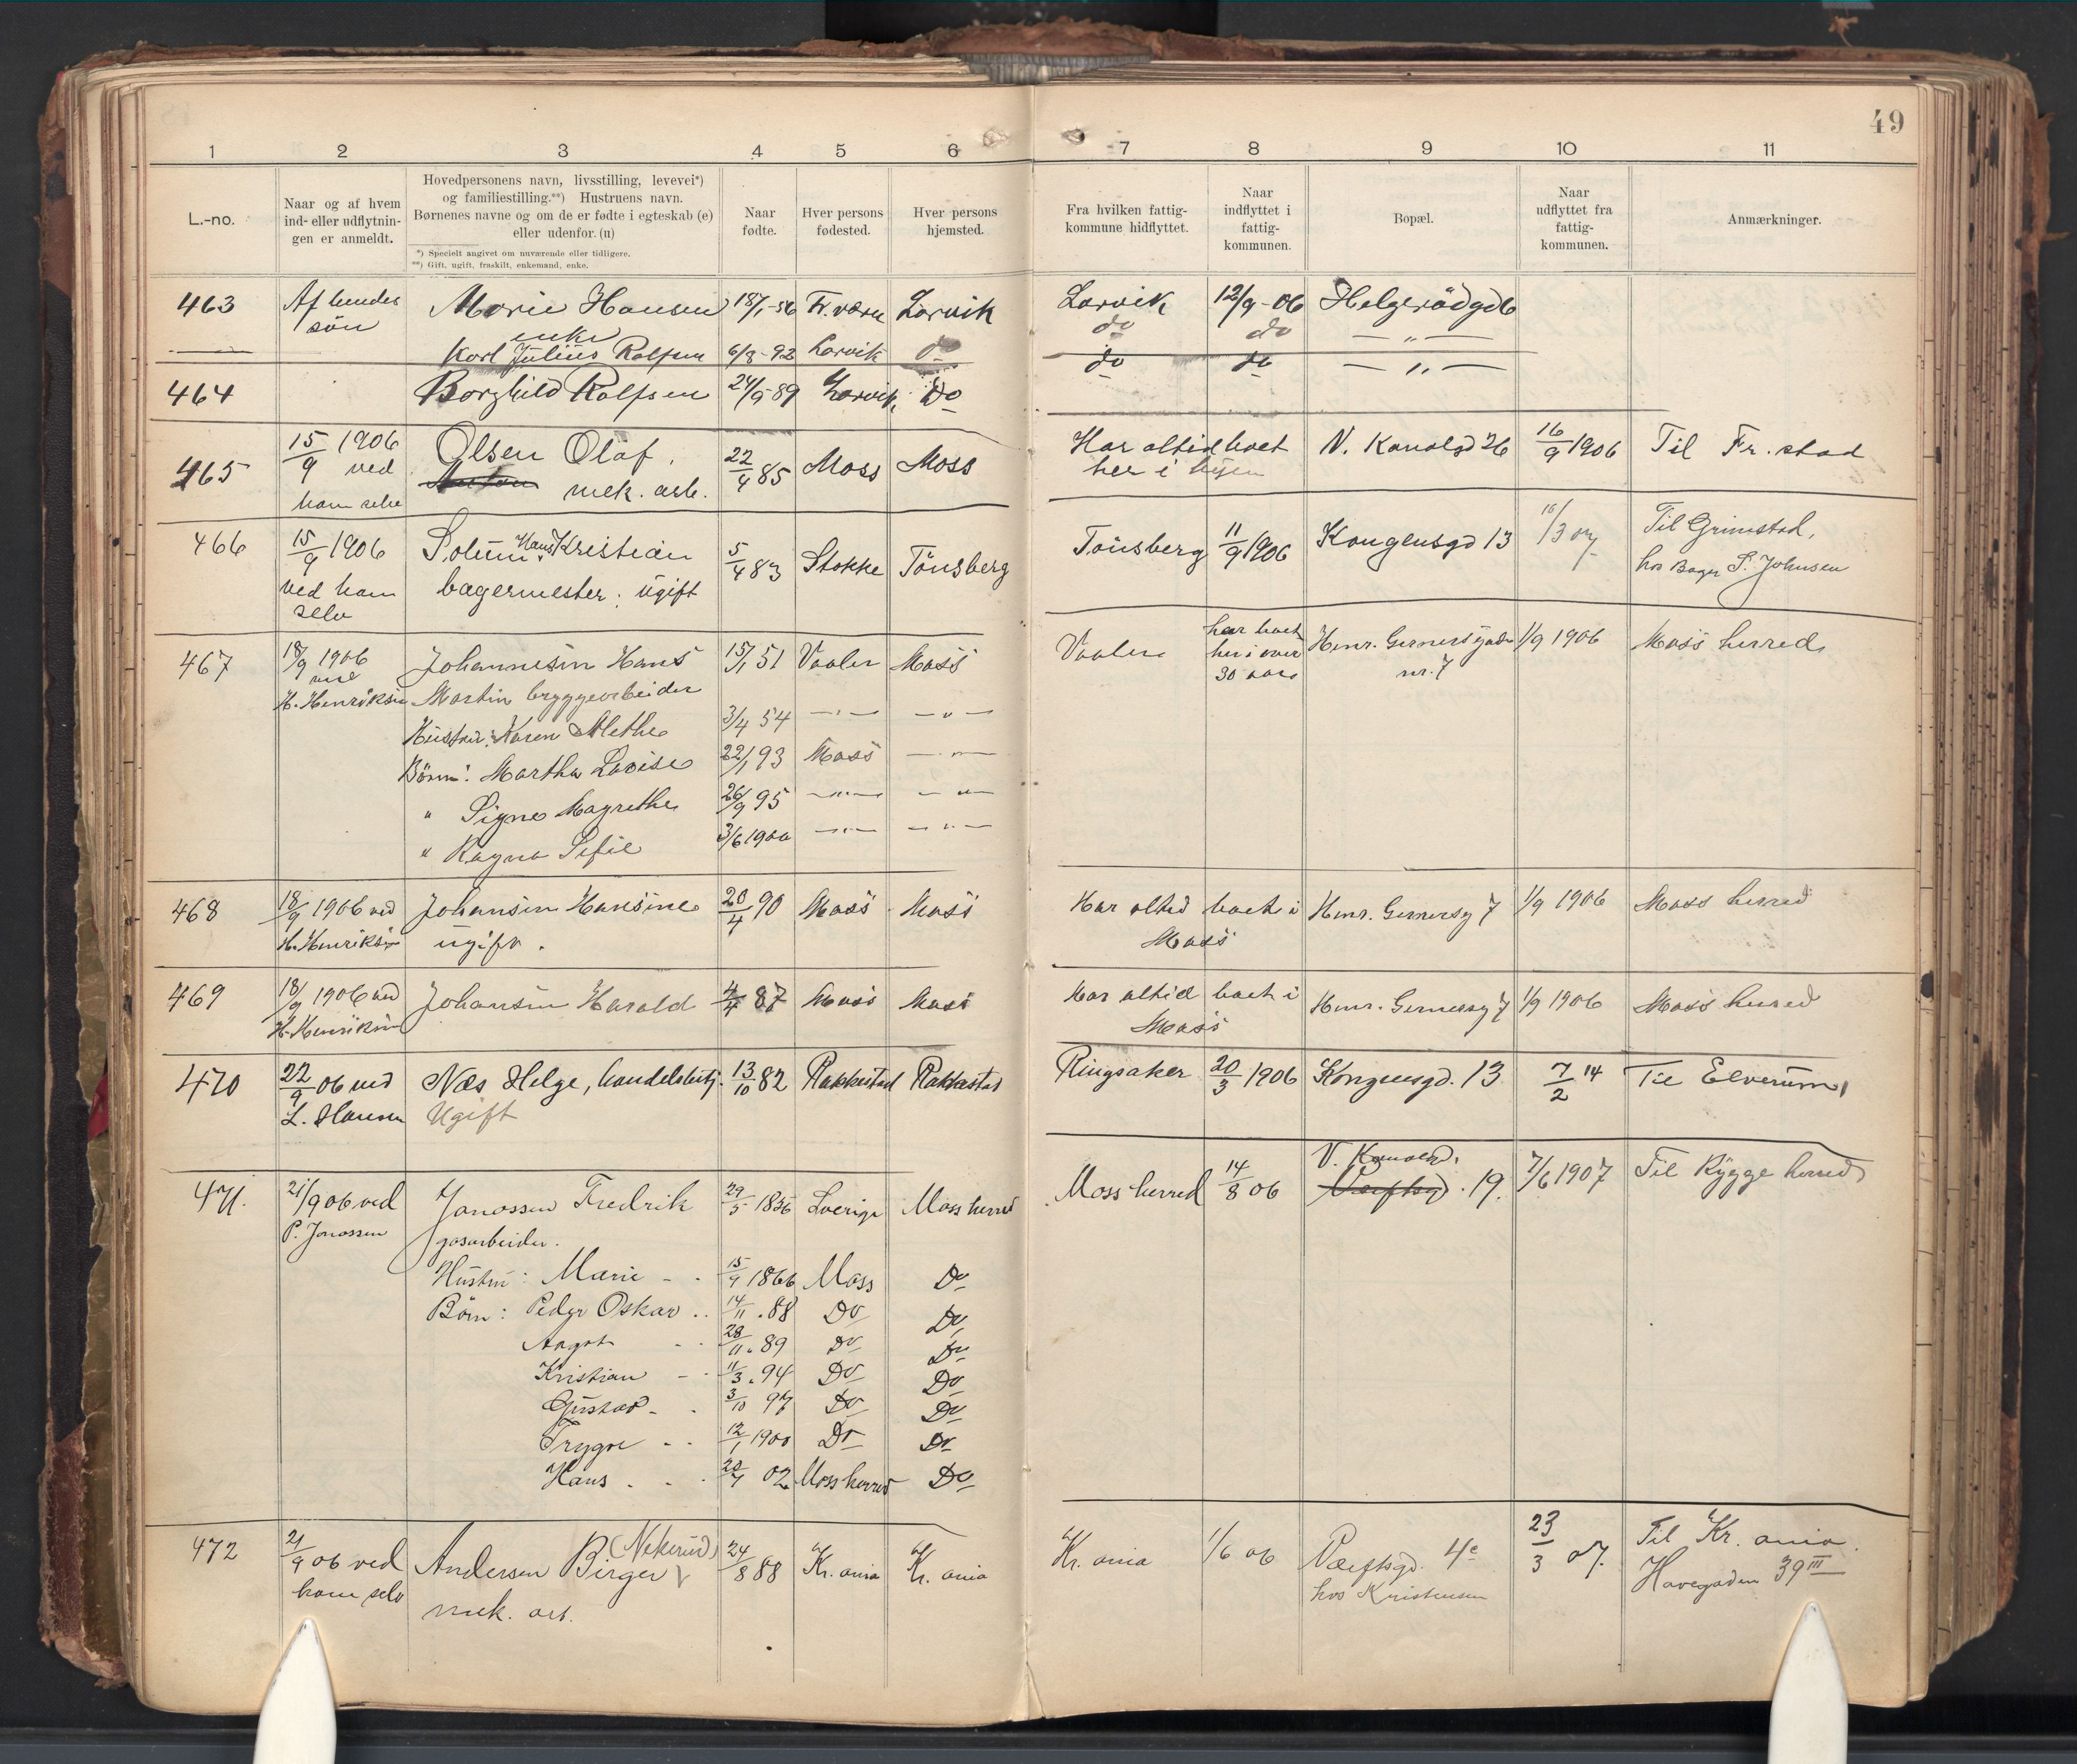 49
1 2 3 4 5 6 7 8 9 10 11
L.-no.
Naar og af hvem
ind- eller udflytnin-
gen er anmeldt.
Hovedpersonens navn, livsstilling, levevei*)
og familiestilling.**) Hustruens navn.
Børnenes navne og om de er fødte i egteskab (e)
eller udenfor. (u)
*) Specielt angivet om nuværende eller tidligere.
**) Gift, ugift, fraskilt, enkemand, enke.
Naar
fødte.
Hver persons
fødested.
Hver persons
hjemsted.
Fra hvilken fattig-
kommune hidflyttet.
Naar
indflyttet i
fattig-
kommunen.
Bopæl.
Naar
udflyttet fra
fattig-
kommunen.
Anmærkninger.
463 Af hendes Marie Hansen 18/1-56 Fr.værn Larvik Larvik 12/9-06 Helgerödgd 6
søn enke do do — „ —
Karl Julius Rolfsen 6/8-92 Larvik do do do — „ —
464 Borghild Rolfsen 24/9-89 Larvik Do
465 15/9 1906 ved Olsen Olaf. 22/4 85 Moss Moss Har altid boet N. Kanalgd 26 16/9 1906 Til Fr.stad
ham selv mek. arb. her i byen
466 15/9 1906 Solum Hans Kristian 5/4 83 Stokke Tönsberg Tönsberg 11/9 1906 Kongensgd 13 16/3 07 Til Grimstad,
ved ham bagermester. ugift hos Bager S. Johnsen
selv
467 18/9 1906 Johannesen Hans 15/1 51 Vaaler Moss Vaaler har boet Henr. Gernersgade 1/9 1906 Moss herred
ved her i over nr. 7
H. Henriksen Martin bryggearbeider 30 aar
Hustru: Karen Mathe 3/4 54 — „ — — „ —
Börn: Martha Lovise 22/1 93 Moss — „ —
„ Signe Magrethe 26/9 95 — „ — — „ —
„ Ragna Sofie 3/6 1900 — „ — — „ —
468 18/9 1906 ved Johansen Hansine 20/4 90 Moss Moss Har altid boet i Henr. Gernersg 7 1/9 1906 Moss herred
H. Henriksen ugift. Moss
469 18/9 1906 ved Johansen Harald 4/4 87 Moss Moss Har altid boet i Henr. Gernersg 7 1/9 1906 Moss herred
H. Henriksen Moss
470 22/9 06 ved Næs Helge, handelsbetj. 13/10 82 Rakkestad Rakkestad Ringsaker 20/3 1906 Kongensgd. 13 7/2 14 Til Elverum,
L. Hansen Ugift
471. 21/9 06 ved Jonassen Fredrik 29/5 1856 Sverige Moss herred Moss herred 14/8 06 V. Kanalgd. Værftsgd. 19. 7/6 1907 Til Rygge herred
P. Jonassen gasarbeider.
Hustru: Marie - - 15/9 1866 Moss Do
Börn: Peder Oskar .. 14/11.88 Do Do
Aagot - - 28/11.89 Do Do
Kristian - - 11/3.94 Do Do
Gustav - . 3/10 97 Do Do
Trygve - - 12/1 1900 Do Do
Hans . . . 20/7 02 Moss herred Do
472 21/9 06 ved Andersen Birger (Nekerud) 24/8 88 Kr. ania Kr. ania Kr. ania 1/6 06 Værftsgd. 4c 23/3 07. Til Kr. ania.
ham selv mek. arb. hos Kristensen Havegaden 39 III